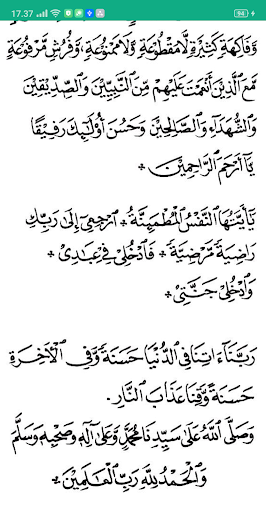 17.37
94
وَفَاكِهَةٍ كَثِيْرَةٍ لَّا مَقْطُوْعَةٍ وَلَا مَمْنُوْعَةٍ، وَفُرُشٍ مَّرْفُوْعَةٍ
مَّعَ الَّذِيْنَ أَنْعَمْتَ عَلَيْهِمْ مِّنَ النَّبِيِّيْنَ وَالصِّدِّيْقِيْنَ
وَالشُّهَدَآءِ وَالصَّالِحِيْنَ وَحَسُنَ أُولٰٓئِكَ رَفِيْقًا
يَآ أَرْحَمَ الرَّاحِمِيْنَ
يَآ أَيَّتُهَا النَّفْسُ الْمُطْمَئِنَّةُ ارْجِعِيْ إِلَى رَبِّكِ
رَاضِيَةً مَّرْضِيَّةً فَادْخُلِيْ فِيْ عِبَادِيْ
وَادْخُلِيْ جَنَّتِيْ
رَبَّنَآ ءَاتِنَا فِي الدُّنْيَا حَسَنَةً وَّفِي الْأٓخِرَةِ
حَسَنَةً وَّقِنَا عَذَابَ النَّارِ.
وَصَلَّى اللّٰهُ عَلَى سَيِّدِنَا مُحَمَّدٍ وَّعَلَى آلِهِ وَصَحْبِهِ وَسَلَّمَ
وَالْحَمْدُ لِلّٰهِ رَبِّ الْعَالَمِيْنَ